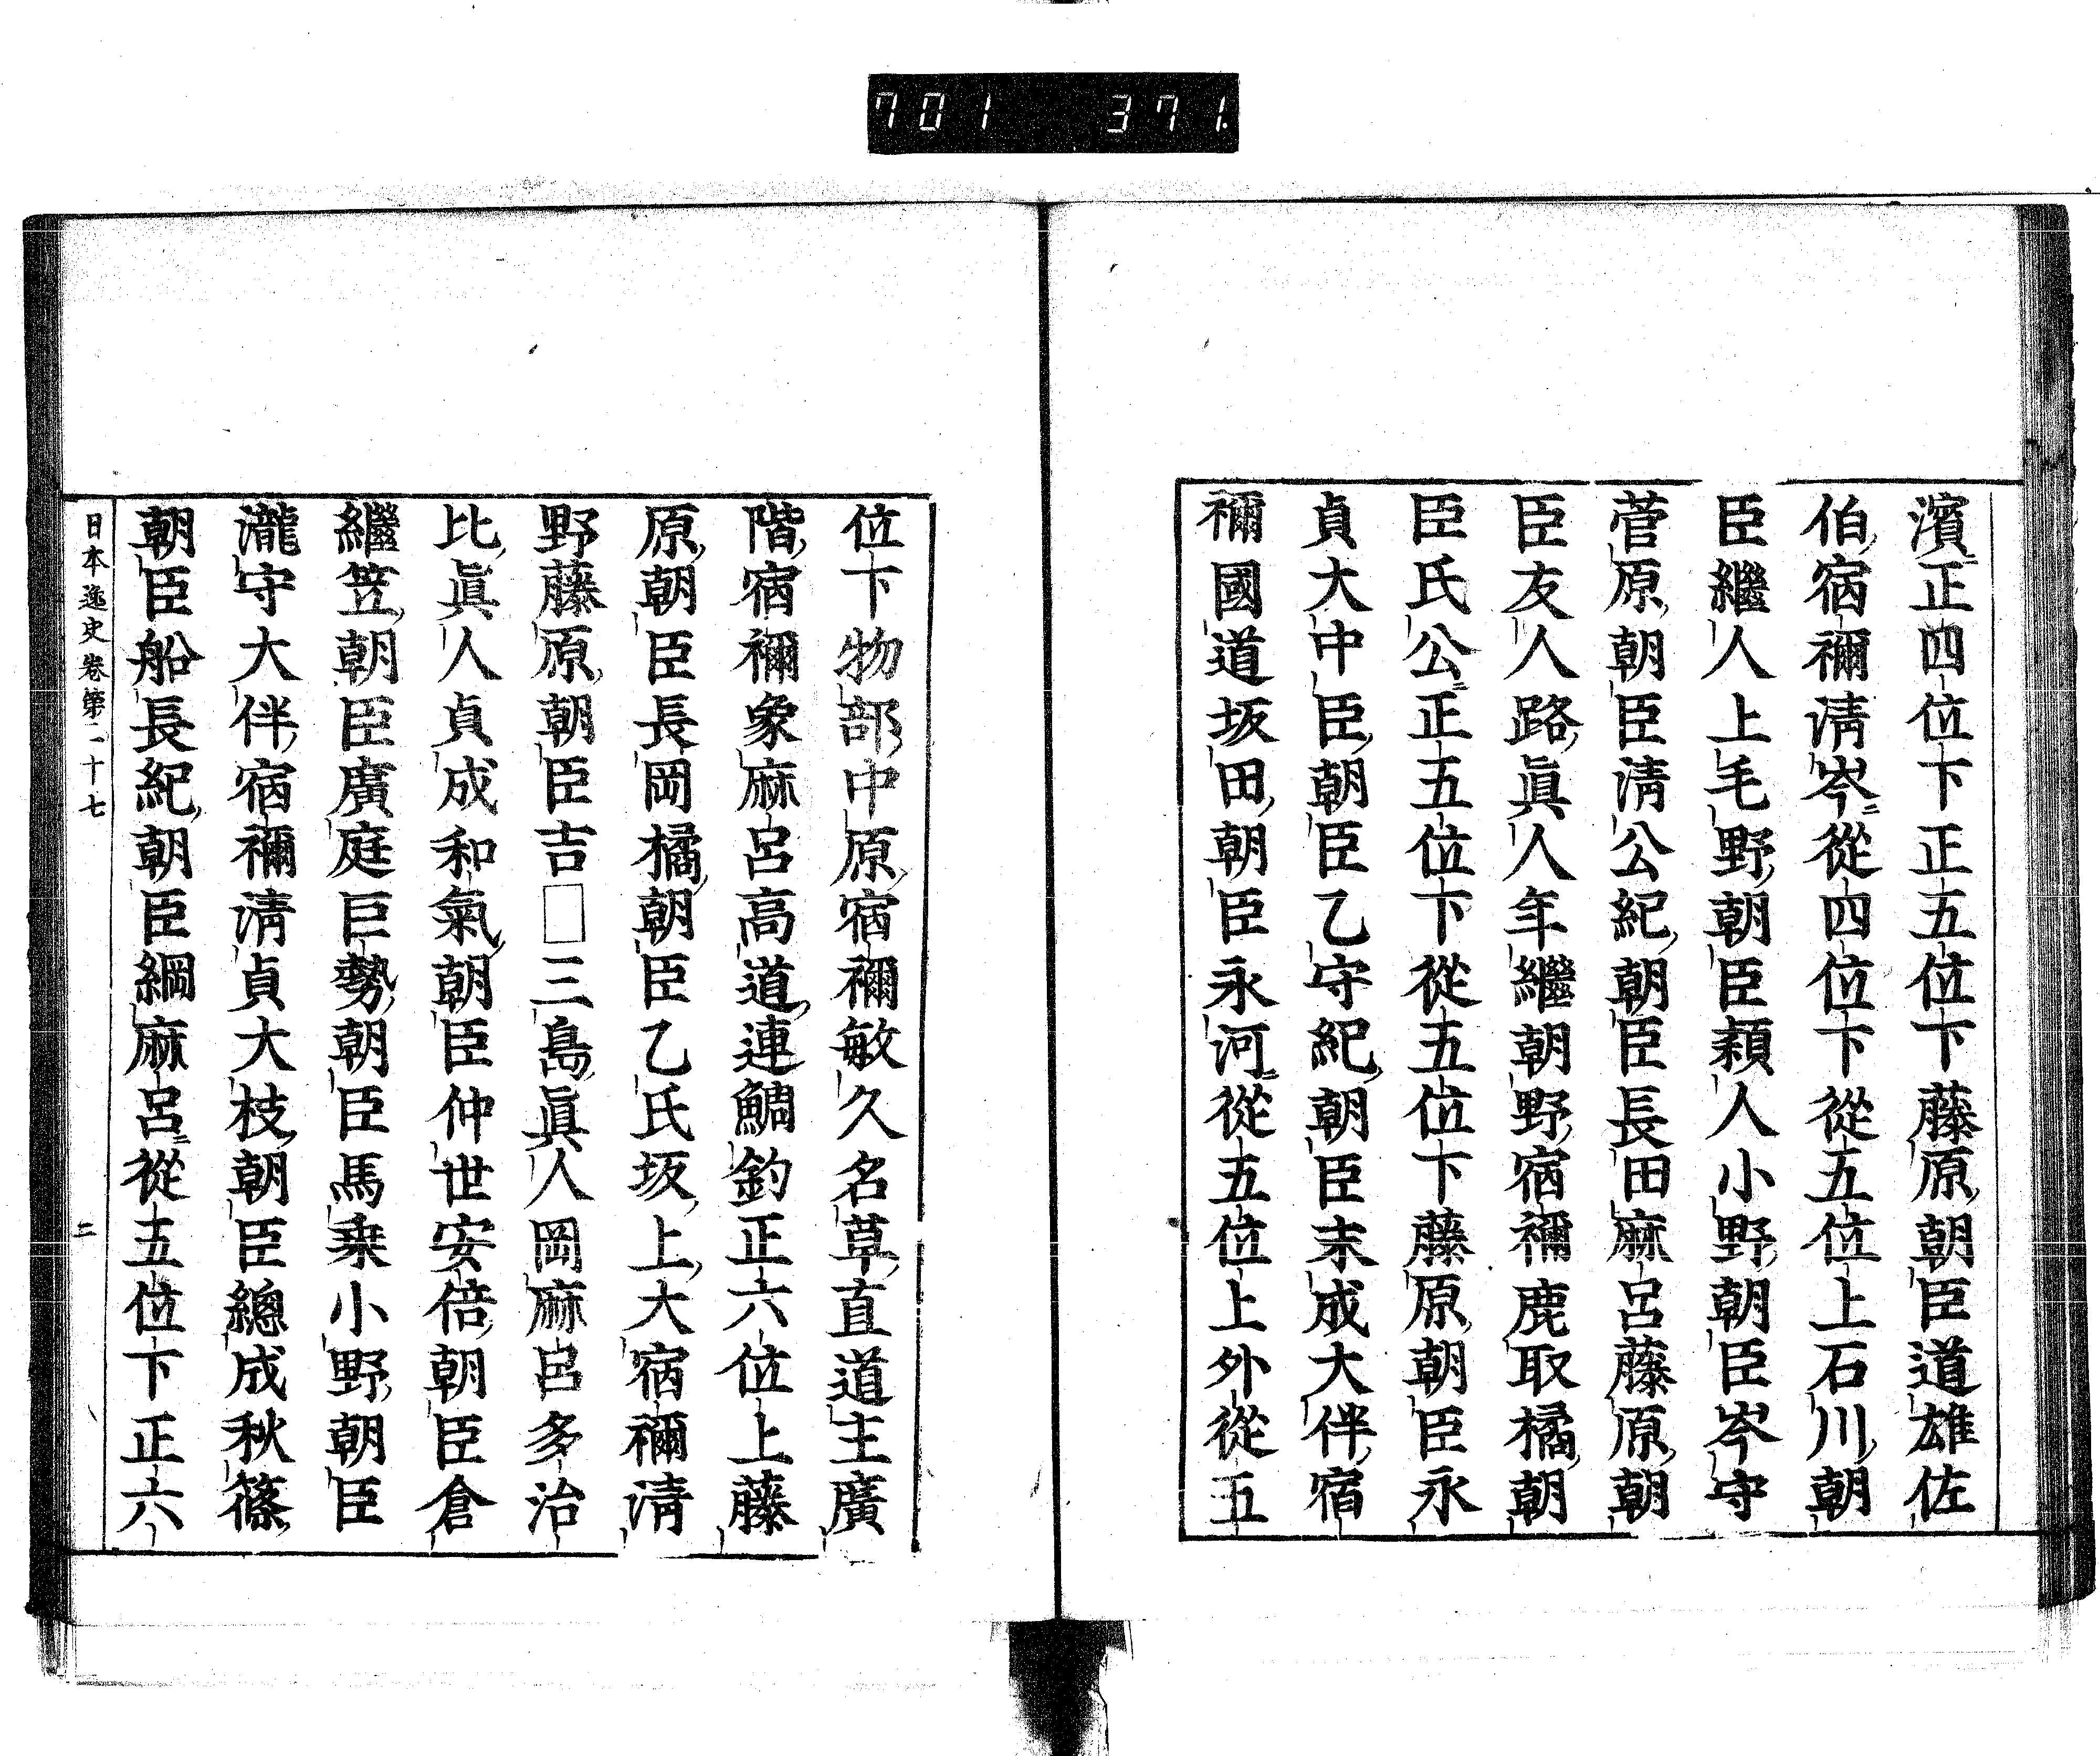 701 371.
濱正四位下正五位下藤原朝臣道雄佐
伯宿禰淸岑從四位下從五位上石川朝
臣繼人上毛野朝臣穎人小野朝臣岑守
菅原朝臣淸公紀朝臣長田麻呂藤原朝
臣友人路眞人年繼朝野宿禰鹿取橘朝
臣氏公正五位下從五位下藤原朝臣永
貞大中臣朝臣乙守紀朝臣末成大伴宿
禰國道坂田朝臣永河從五位上外從五
位下物部中原宿禰敏久名草直道主廣
階宿禰象麻呂高道連鯛釣正六位上藤
原朝臣長岡橘朝臣乙氏坂上大宿禰淸
野藤原朝臣吉□三島眞人岡麻呂多治
比眞人貞成和氣朝臣仲世安倍朝臣倉
繼笠朝臣廣庭巨勢朝臣馬乗小野朝臣
瀧守大伴宿禰淸貞大枝朝臣總成秋篠
朝臣船長紀朝臣綱麻呂從五位下正六
日本逸史卷第二十七 二